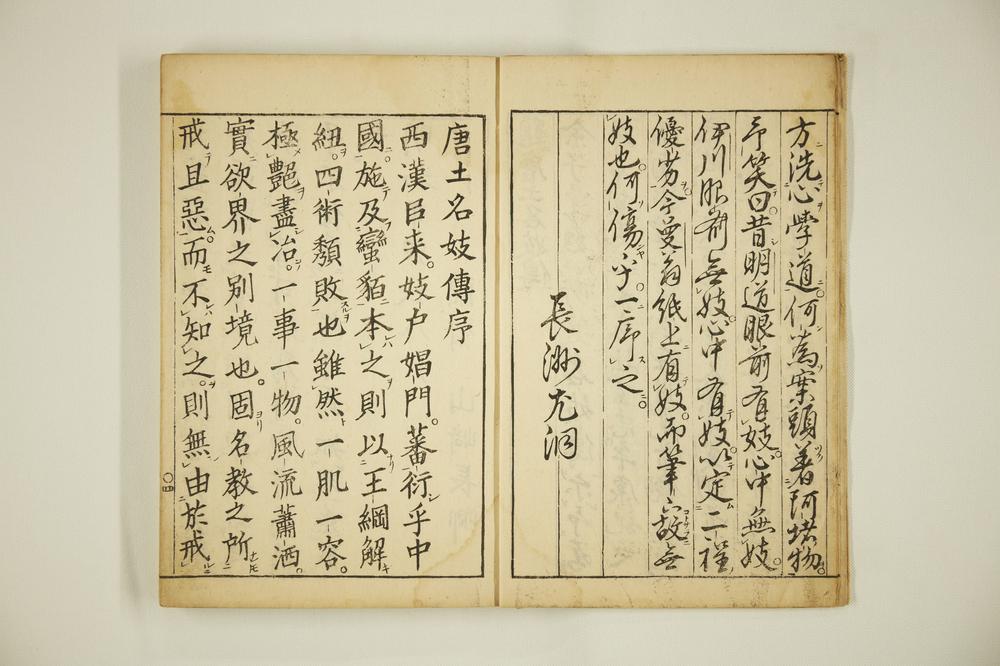 方洗心學道何為案頭著阿堵物
予笑曰昔明道眼前有妓心中無妓
伊川眼前無妓心中有妓以定二程
優劣今曼翁紙上有妓而筆下故無
妓也何傷乎一序之
長洲尤洞
唐土名妓傳序
西漢目来妓戶娼門蕃衍乎中
國施及蠻貊本之則以王綱解
紐四術頽敗也雖然一肌一容
極艷盡冶一事一物風流蕭洒
實欲界之別境也固名教之所
戒且惡而不知之則無由於戒